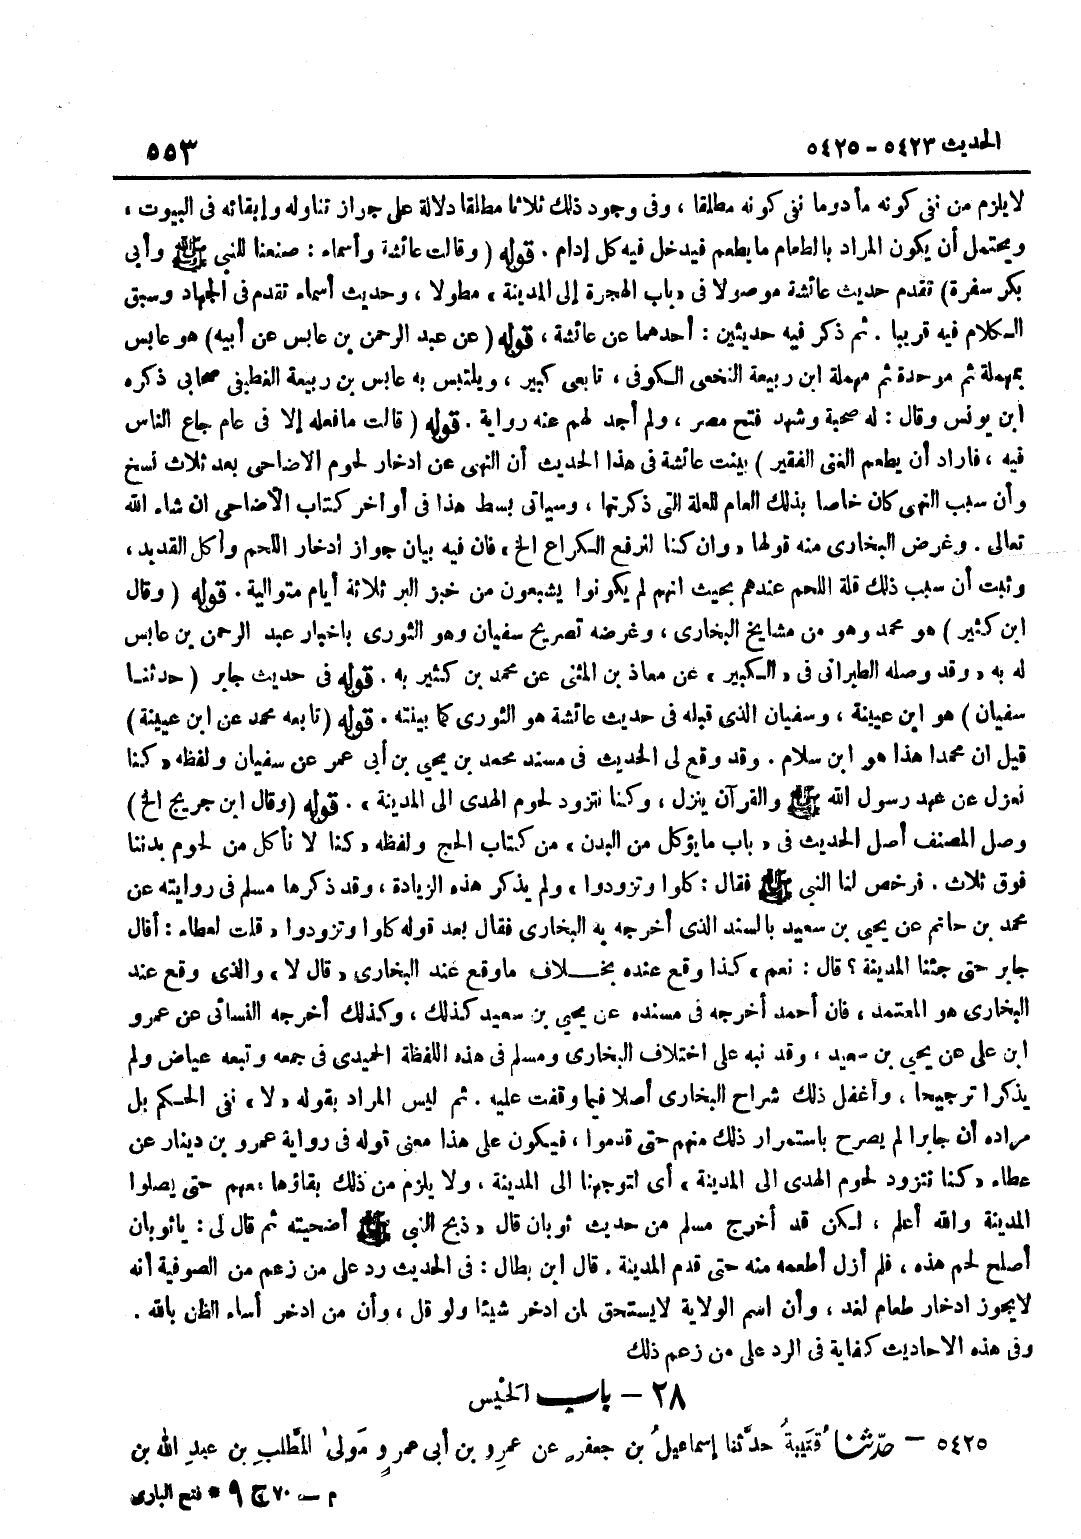 الحديث ٥٤٢٣ – ٥٤٢٥ ٥٥٣
لا يلزم من نفى كونه مأدوما نفى كونه مطلقا ، وفى وجود ذلك ثلاثا مطلقا دلالة على جراز تناوله وإبقائه فى البيوت ،
ويحتمل أن يكون المراد بالطعام ما يطعم فيدخل فيه كل إدام . قوله ( وقالت عائشة وأسماء : صنعنا للنبي ﷺ وأبى
بكر سفرة) تقدم حديث عائشة موصولا فى « باب الهجرة إلى المدينة » مطولا ، وحديث أسماء تقدم فى الجهاد وسبق
الـكلام فيه قريبا . ثم ذكر فيه حديثين : أحدهما عن عائشة ، قوله ( عن عبد الرحمن بن عابس عن أبيه) هو عابس
بمهملة ثم موحدة ثم مهملة ابن ربيعة النخعى الـكوفى ، تابعى كبير ، ويلتبس به عابس بن ربيعة الغطيفى صحابى ذكره
ابن يونس وقال : له صحبة وشهد فتح مصر ، ولم أجد لهم عنه رواية . قوله ( قالت ما فعله إلا فى عام جاع الناس
فيه ، فاراد أن يطعم الغنى الفقير ) بينت عائشة فى هذا الحديث أن النهى عن ادخار لحوم الاضاحى بعد ثلاث نسخ
وأن سبب النهى كان خاصا بذلك العام للعلة التى ذكرتها ، وسيأتى بسط هذا فى أواخر كتاب الأضاحى ان شاء الله
تعالى . وغرض البخارى منه قولها « وان كنا لنرفع الـكراع الخ » فان فيه بيان جواز ادخار اللحم وأكل القديد ،
وثبت أن سبب ذلك قلة اللحم عندهم بحيث انهم لم يكونوا يشبعون من خبز البر ثلاثة أيام متوالية . قوله ( وقال
ابن كثير ) هو محمد وهو من مشايخ البخارى ، وغرضه تصريح سفيان وهو الثورى باخبار عبد الرحمن بن عابس
له به ، وقد وصله الطبرانى فى « الـكبير » عن معاذ بن المثنى عن محمد بن كثير به . قوله فى حديث جابر ( حدثنـا
سفيان ) هو ابن عيينة ، وسفيان الذى قبله فى حديث عائشة هو الثورى كما بينته . قوله ( تابعه محمد عن ابن عيينة )
قيل ان محمدا هذا هو ابن سلام . وقد وقع لى الحديث فى مسند محمد بن يحيى بن أبى عمر عن سفيان ولفظه « كنا
نعزل عن عهد رسول الله ﷺ والقرآن ينزل ، وكنا نتزود لحوم الهدى الى المدينة » . قوله ( وقال ابن جريج الخ )
وصل المصنف أصل الحديث فى « باب ما يؤكل من البدن » من كتاب الحج ولفظه « كنا لا نأكل من لحوم بدننا
فوق ثلاث . فرخص لنا النبي ﷺ فقال : كلوا وتزودوا » ولم يذكر هذه الزيادة ، وقد ذكرها مسلم فى روايته عن
محمد بن حاتم عن يحيى بن سعيد بالسند الذى أخرجه به البخارى فقال بعد قوله كلوا وتزودوا « قلت لعطاء : أقال
جابر حتى جئنا المدينة ؟ قال : نعم » كذا وقع عنده بخـلاف ما وقع عند البخارى « قال لا » والذى وقع عند
البخارى هو المعتمد ، فان أحمد أخرجه فى مسنده عن يحيى بن سعيد كذلك ، وكذلك أخرجه النسائى عن عمرو
ابن على عن يحيى بن سعيد ، وقد نبه على اختلاف البخارى ومسلم فى هذه اللفظة الحميدى فى جمعه وتبعه عياض ولم
يذكرا ترجيحا ، وأغفل ذلك شراح البخارى أصلا فيما وقفت عليه . ثم ليس المراد بقوله « لا » نفى الحـكم بل
مراده أن جابرا لم يصرح باستمرار ذلك منهم حتى قدموا ، فيكون على هذا معنى قوله فى رواية عمرو بن دينار عن
عطاء « كنا نتزود لحوم الهدى الى المدينة » أى لتوجهنا الى المدينة ، ولا يلزم من ذلك بقاؤها معهم حتى يصلوا
المدينة والله أعلم ، لـكن قد أخرج مسلم من حديث ثوبان قال « ذبح النبي ﷺ أضحيته ثم قال لى : ياثوبان
أصلح لحم هذه ، فلم أزل أطعمه منه حتى قدم المدينة . قال ابن بطال : فى الحديث رد على من زعم من الصوفية أنه
لا يجوز ادخار طعام لغد ، وأن اسم الولاية لا يستحق لمن ادخر شيئا ولو قل ، وأن من ادخر أساء الظن بالله .
وفى هذه الاحاديث كفاية فى الرد على من زعم ذلك
٢٨ – باب الحَيْس
٥٤٢٥ – حدّثنا قُتَيبةُ حدَّثنا إسماعيلُ بن جعفر عن عمرِو بن أبى عمرٍو مَولىٰ المُطَّلبِ بن عبدِ الله بن
م – ٧٠ ج ٩ * فتح البارى